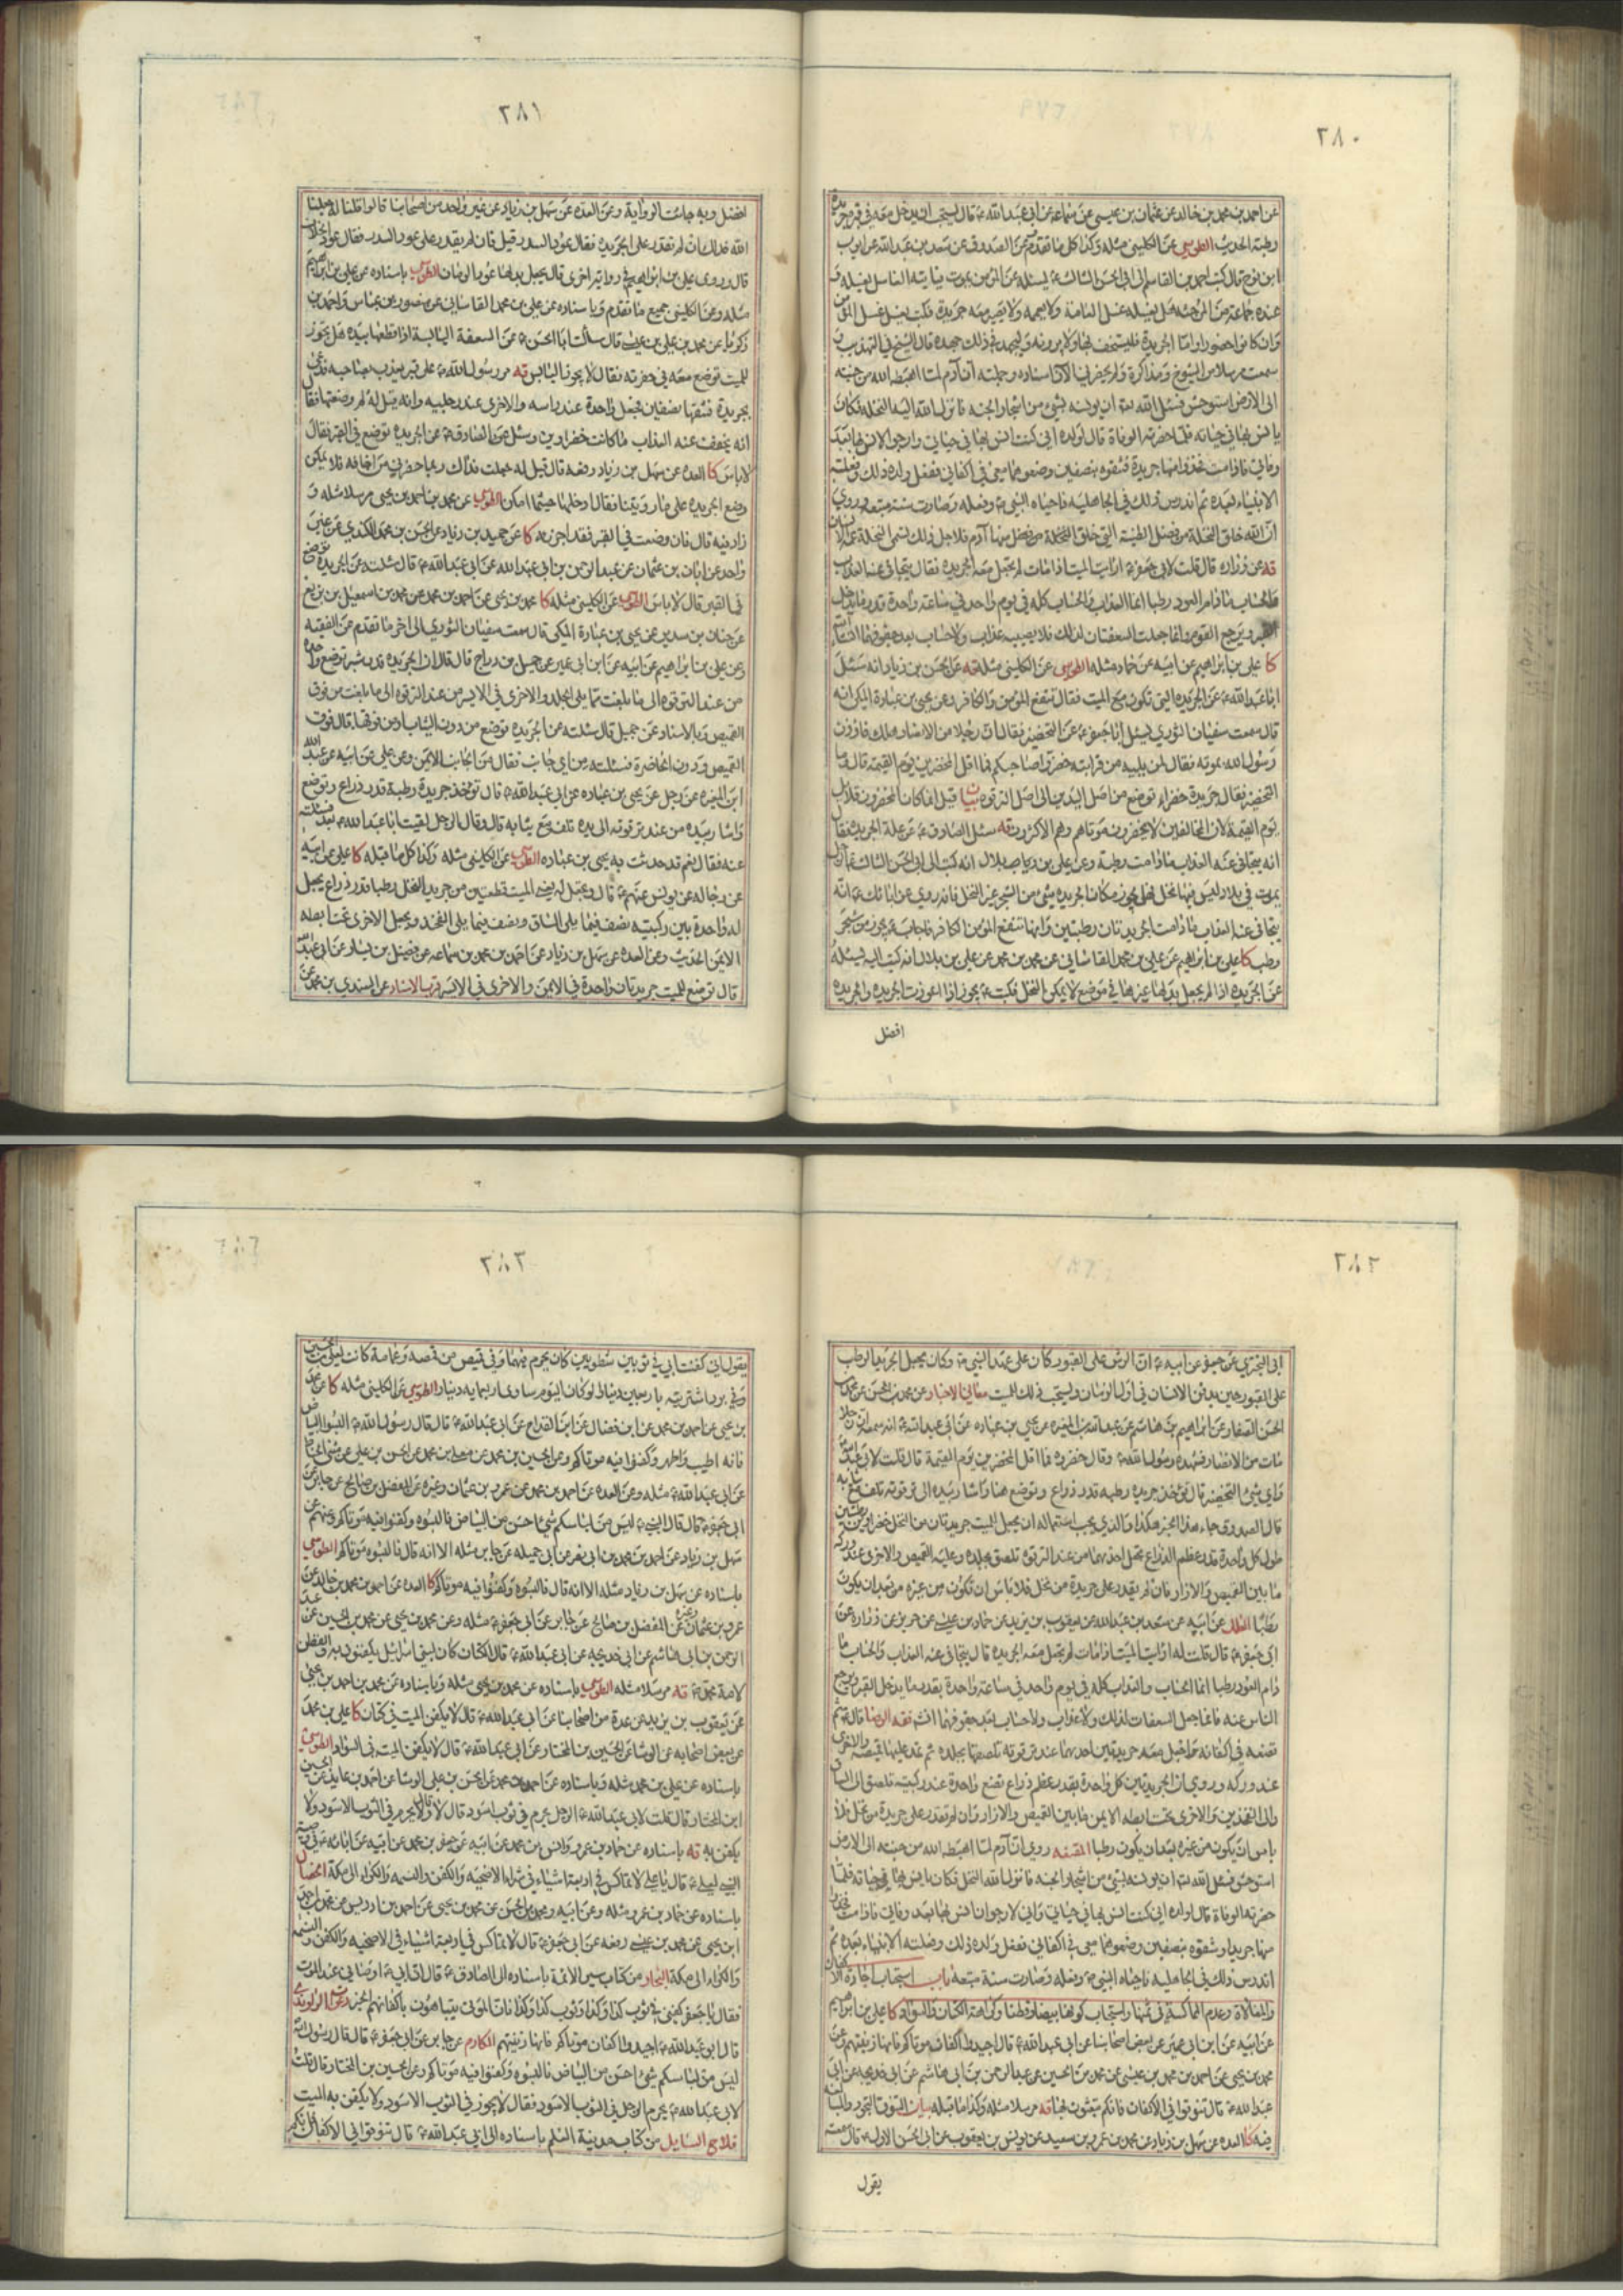 ٢٨٠
عن احمد بن محمد بن خالد عن عثمان بن عيسى عن سماعه عن ابى عبد الله ع قال يستحب ان يدخل معه فى قبره جريدة
رطبة الحديث الطوسي عن الكليني مثله وكذا كل ما تقدم عن الصدوق عن سعد بن عبد الله عن ايوب
ابن نوح قال كتب احمد بن القاسم الى ابى الحسن الثالث ع يسئله عن المؤمن يموت فياتيه الغاسل يغسله و
عنده جماعة من المرجئه هل يغسله غسل العامة ولا يعممه ولا يصير معه جريدة فكتب يغسل غسل المؤمن
وان كانوا حضورا واما الجريدة فليستخف بها ولا يرونه وليجهد فى ذلك جهده قال الشيخ فى التهذيب
سمعت مرسلا من الشيوخ ومذاكرة ولم يحضرني الآن اسناده وجملته ان آدم لما اهبطه الله من جنته
الى الارض استوحش فسئل الله تعه ان يونسه بشئ من اشجار الجنه فانزل الله اليه النخله فكان
يانس بها فى حياته فلما حضرته الوفاة قال لولده انى كنت انس بها فى حياتى وارجو الانس بها بعد
وفاتى فاذا مت فخذوا منها جريدة فشقوه بنصفين وضعوهما معى فى اكفانى ففعل ولده ذلك وفعلته
الانبياء بعده ثم اندرس ذلك فى الجاهليه فاحياه النبى ص وفعله وصارت سنة متبعه وروي
ان الله خلق النخلة من فضل الطينه التى خلق منها آدم فلاجل ذلك تسمى النخلة عمة الانسان
قه عن زراره قال قلت لابى جعفر ع ارايت الميت اذا مات لم تجعل معه الجريده فقال يتجافى عنه العذاب
والحساب ما دام العود رطبا انما العذاب والحساب كله فى يوم واحد فى ساعة واحدة قدر ما يدخل
القبر ويرجع القوم وانما جعلت السعفتان لذلك فلا يصيبه عذاب ولا حساب بعد جفوفهما انشاءالله
كا على بن ابراهيم عن ابيه عن حماد مثله الطوسى عن الكليني مثله قه عن الحسن بن زياد انه سئل
ابا عبد الله ع عن الجريده التى تكون مع الميت فقال تنفع المؤمن والكافر وعن يحيى بن عبادة المكى انه
قال سمعت سفيان الثوري يسئل ابا جعفر ع عن التخضير فقال ان رجلا من الانصار هلك فاوذن
رسول الله بموته فقال لمن يليه من قرابته خضروا صاحبكم فما اقل المخضرين يوم القيمة قال وما
التخضير فقال جريدة خضراء توضع من اصل اليدين الى اصل الترقوه بيان قيل انما كان المخضرون قلائل
يوم القيمة لان المخالفين لا يخضرون موتاهم وهم الاكثرون قه سئل الصادق ع عن علة الجريده فقال
انه يتجافى عنه العذاب ما دامت رطبة وعن على بن بلال انه كتب الى ابى الحسن الثالث ع الرجل
يموت فى بلاد ليس فيها نخل فهل يجوز مكان الجريده شئ من الشجر غير النخل فانه روى عن ابائك ع انه
يتجافى عنه العذاب ما دامت الجريدتان رطبتين وانها تنفع المؤمن والكافر فاجاب ع يجوز من شجر
رطب كا على بن ابراهيم عن على بن محمد القاساني عن محمد بن محمد عن على بن بلال انه كتب اليه يسئله
عن الجريده اذا لم يجد يجعل بدلها غيرها فى موضع لا يمكن النخل فكتب ع يجوز اذا اعوزت الجريده والجريده
افضل
٢٨١
افضل وبه جاءت الروايه وعن العده عن سهل بن زياد عن غير واحد من اصحابنا قالوا قلنا له جعلنا
الله فداك ان لم نقدر على الجريده فقال عود السدر قيل فان لم يقدر على عود السدر فقال عود الخلاف
قال وروى على بن ابراهيم فى رواية اخرى قال يجعل بدلها عود الرمان الطوسى باسناده عن على بن ابراهيم
مثله وعن الكليني جميع ما تقدم وباسناده عن على بن محمد القاساني عن منصور بن عباس واحمد بن
زكريا عن محمد بن على بن عيسى قال سألت ابا الحسن ع عن السعفة اليابسة اذا قطعها بيده هل يجوز
للميت توضع معه فى حفرته فقال لا يجوز اليابس قه مر رسول الله ص على قبر يعذب صاحبه فدعى
بجريدة فشقها بنصفين فجعل واحدة عند راسه والاخرى عند رجليه وانه قيل له لم وضعتها فقال
انه يخفف عنه العذاب ما كانت خضراوين وسئل عن الصادق ع عن الجريده توضع فى القبر فقال
لا باس كا العده عن سهل بن زياد رفعه قال قيل له جعلت فداك ربما حضرني من اخافه فلا يمكن
وضع الجريده على ما رويتنا فقال ادخلها حيثما امكن الطوسى عن محمد بن احمد بن يحيى مرسلا مثله و
زاد فيه قال فان وضعت فى القبر فقد اجزاه كا عن حميد بن زياد عن الحسن بن محمد الكندى عن غير
واحد عن ابان بن عثمان عن عبد الرحمن بن ابى عبد الله عن ابى عبد الله ع قال سئلته عن الجريده توضع
فى القبر قال لا باس الطوسى عن الكليني مثله كا محمد بن يحيى عن احمد بن محمد عن محمد بن اسمعيل بن بزيع
عن حنان بن سدير عن يحيى بن عبادة المكى قال سمعت سفيان الثوري الى اخر ما تقدم عن الفقيه
وعن على بن ابراهيم عن ابيه عن ابن ابى عمير عن جميل بن دراج قال قال ان الجريده قدر شبر توضع واحده
من عند الترقوه الى ما بلغت مما يلى الجلد والاخرى فى الايسر من عند الترقوه الى ما بلغت من فوق
القميص وبالاسناد عن جميل قال سئلته عن الجريده توضع من دون الثياب او من فوقها قال فوق
القميص ودون الخاصرة فسئلته من اى جانب فقال من الجانب الايمن وعن على عن ابيه عن عبد الله
ابن المغيره عن رجل عن يحيى بن عباده عن ابى عبد الله ع قال توخذ جريدة رطبة قدر ذراع وتوضع
واشار بيده من عند ترقوته الى يده تلف مع ثيابه قال وقال الرجل لقيت ابا عبد الله ع بعد فسئلته
عنه فقال نعم قد حدثت به يحيى بن عباده الطوسى عن الكليني مثله وكذا كل ما قبله كا على عن ابيه
عن رجاله عن يونس عنهم ع قال وتجعل له يعنى الميت قطعتين من جريد النخل رطبا قدر ذراع يجعل
له واحدة بين ركبتيه نصف فيما يلى الساق ونصف فيما يلى الفخذ ويجعل الاخرى تحت ابطه
الايمن الحديث وعن العده عن سهل بن زياد عن احمد بن محمد بن سماعه عن فضيل بن يسار عن ابى عبد الله
قال توضع للميت جريدتان واحدة فى الايمن والاخرى فى الايسر قرب الاسناد عن السندى بن محمد عن
٢٨٢
ابى البختري عن جعفر عن ابيه ع ان الرش على القبور كان على عهد النبي ص وكان يجعل الجريد الرطب
على القبور حين يدفن الانسان فى اول الزمان ويستحب ذلك للميت معانى الاخبار عن محمد بن الحسن عن محمد بن
الحسن الصفار عن ابراهيم بن هاشم عن عبد الله بن المغيره عن يحيى بن عباده عن ابى عبد الله ع انه سمعه ان رجلا
مات من الانصار فشهده رسول الله ص وقال خضروه فما اقل المخضرين يوم القيمة قال قلت لابى عبد الله
واى شئ التخضير قال توخذ جريدة رطبه قدر ذراع وتوضع هنا واشار بيده الى ترقوته تلف مع ثيابه
قال الصدوق جاء هذا الخبر هكذا والذى يجب استعماله ان يجعل للميت جريدتان من النخل خضراوين رطبتين
طول كل واحدة قدر عظم الذراع تجعل احدهما من عند الترقوه تلصق بجلده وعليه القميص والاخرى عند وركه
ما بين القميص والازار فان لم يقدر على جريدة من نخل فلا باس ان تكون من غيره بعد ان يكون
رطبا العلل عن ابيه عن سعد بن عبد الله عن يعقوب بن يزيد عن حماد بن عيسى عن حريز عن زراره عن
ابى جعفر ع قال قلت له ارايت الميت اذا مات لم تجعل معه الجريده قال يتجافى عنه العذاب والحساب ما
دام العود رطبا انما الحساب والعذاب كله فى يوم واحد فى ساعة واحدة بقدر ما يدخل القبر ويرجع
الناس عنه فانما جعل السعفات لذلك ولا عذاب ولا حساب بعد جفوفهما انشه فقه الرضا قال ع ثم
تضعه فى اكفانه واجعل معه جريدتين احدهما عند ترقوته تلصقها بجلده ثم تمد عليها قميصه والاخرى
عند وركه وروى ان الجريدتين كل واحدة بقدر عظم ذراع تضع واحدة عند ركبتيه تلصق الى الساق
والى الفخذين والاخرى تحت ابطه الايمن ما بين القميص والازار وان لم تقدر على جريدة من نخل فلا
باس ان يكون من غيره بعد ان يكون رطبا المقنعه روى ان آدم لما اهبطه الله من جنته الى الارض
استوحش فسئل الله تعه ان يونسه بشئ من اشجار الجنه فانزل الله النخل فكان يانس بها فى حياته فلما
حضرته الوفاة قال لولده انى كنت انس بها فى حياتى وانى لارجو ان انس بها بعد وفاتى فاذا مت فخذوا
منها جريدا وشقوه بنصفين وضعوهما معى فى اكفانى ففعل ولده ذلك وفعلته الانبياء بعده ثم
اندرس ذلك فى الجاهليه فاحياه النبي ص وفعله وصارت سنة متبعه باب استحباب اجادة الاكفان
والمغالاة وعدم المماكسة فى ثمنها واستحباب كونها بيضا وقطنا وكراهة الكتان والسواد كا على بن ابراهيم
عن ابيه عن ابن ابى عمير عن بعض اصحابنا عن ابى عبد الله ع قال اجيدوا اكفان موتاكم فانها زينتهم وعن
محمد بن يحيى عن احمد بن محمد بن عيسى عن محمد بن الحسين عن عبد الرحمن بن ابى هاشم عن ابى خديجه عن ابى
عبد الله ع قال تنوقوا فى الاكفان فانكم تبعثون بها قه مرسلا مثله وكذا ما قبله بيان التنوق التجود والمبالغه
فيه كا العده عن سهل بن زياد عن محمد بن عمرو بن سعيد عن يونس بن يعقوب عن ابى الحسن الاول ع قال سمعته
يقول
٢٨٣
يقول انى كفنت ابى فى ثوبين شطويين كان يحرم فيهما وفى قميص من قمصه وعمامة كانت لعلى بن الحسين
وفى برد اشتريته باربعين دينارا لو كان اليوم ساوى اربعمايه دينار الطوسى عن الكليني مثله كا عن محمد
بن يحيى عن احمد بن محمد عن ابن فضال عن ابن القداح عن ابى عبد الله ع قال قال رسول الله ص البسوا البياض
فانه اطيب واطهر وكفنوا فيه موتاكم وعن الحسين بن محمد عن معلى بن محمد عن الحسن بن على عن مثنى الحناط
عن ابى عبد الله ع مثله وعن العده عن احمد بن محمد عن عمرو بن عثمان وغيره عن المفضل بن صالح عن جابر عن
ابى جعفر ع قال قال النبى ص ليس من لباسكم شئ احسن من البياض فالبسوه وكفنوا فيه موتاكم وعنهم عن
سهل بن زياد عن احمد بن محمد بن ابى نصر عن ابى جميله عن جابر مثله الا انه قال فالبسوه موتاكم الطوسى
باسناده عن سهل بن زياد مثله الا انه قال فالبسوه وكفنوا فيه موتاكم كا العده عن احمد بن محمد بن خالد عن
عمرو بن عثمان وغيره عن المفضل بن صالح عن جابر عن ابى جعفر ع مثله وعن محمد بن يحيى عن محمد بن الحسين عن عبد
الرحمن بن ابى هاشم عن ابى خديجه عن ابى عبد الله ع قال الكتان كان لبنى اسرائيل يكفنون به والقطن
لامة محمد ص قه مرسلا مثله الطوسى باسناده عن محمد بن يحيى مثله وباسناده عن محمد بن احمد بن يحيى
عن يعقوب بن يزيد عن عدة من اصحابنا عن ابى عبد الله ع قال لا يكفن الميت فى كتان كا على بن محمد
عن بعض اصحابه عن الوشا عن الحسين بن المختار عن ابى عبد الله ع قال لا يكفن الميت فى السواد الطوسى
باسناده عن على بن محمد مثله وباسناده عن احمد بن محمد عن الحسن بن على الوشا عن احمد بن عايذ عن الحسين
ابن المختار قال قلت لابى عبد الله ع الرجل يحرم فى ثوب اسود قال لا يحرم فى الثوب الاسود ولا
يكفن به قه باسناده عن حماد بن عمرو وانس بن محمد عن ابيه عن جعفر بن محمد عن ابيه عن ابائه ع فى وصية
النبى لعلى ع قال يا على لا تماكس فى اربعة اشياء فى شراء الاضحيه والكفن والنسمه والكراء الى مكة الخصال
باسناده عن حماد بن عمرو مثله وعن ابيه ومحمد بن الحسن عن محمد بن يحيى عن احمد بن ادريس عن محمد بن احمد
ابن يحيى عن محمد بن عيسى رفعه عن ابى جعفر ع قال لا تماكس فى اربعة اشياء فى الاضحيه والكفن والنسمه
والكراء الى مكة البحار من كتاب سير الائمة باسناده الى الصادق ع قال ان ابى ع اوصانى عند الموت
فقال يا جعفر كفنى فى ثوب كذا وكذا وثوب كذا وكذا فان الموتى يتباهون باكفانهم الخبر دعوات الراوندى
قال ابو عبد الله ع اجيدوا اكفان موتاكم فانها زينتهم المكارم عن جابر عن ابى جعفر ع قال قال رسول الله
ليس من لباسكم شئ احسن من البياض فالبسوه وكفنوا فيه موتاكم وعن الحسين بن المختار قال قلت
لابى عبد الله ع يحرم الرجل فى الثوب الاسود فقال لا يجوز فى الثوب الاسود ولا يكفن به الميت
فلاح السايل من كتاب مدينة العلم باسناده الى ابى عبد الله ع قال تنوقوا فى الاكفان فانكم